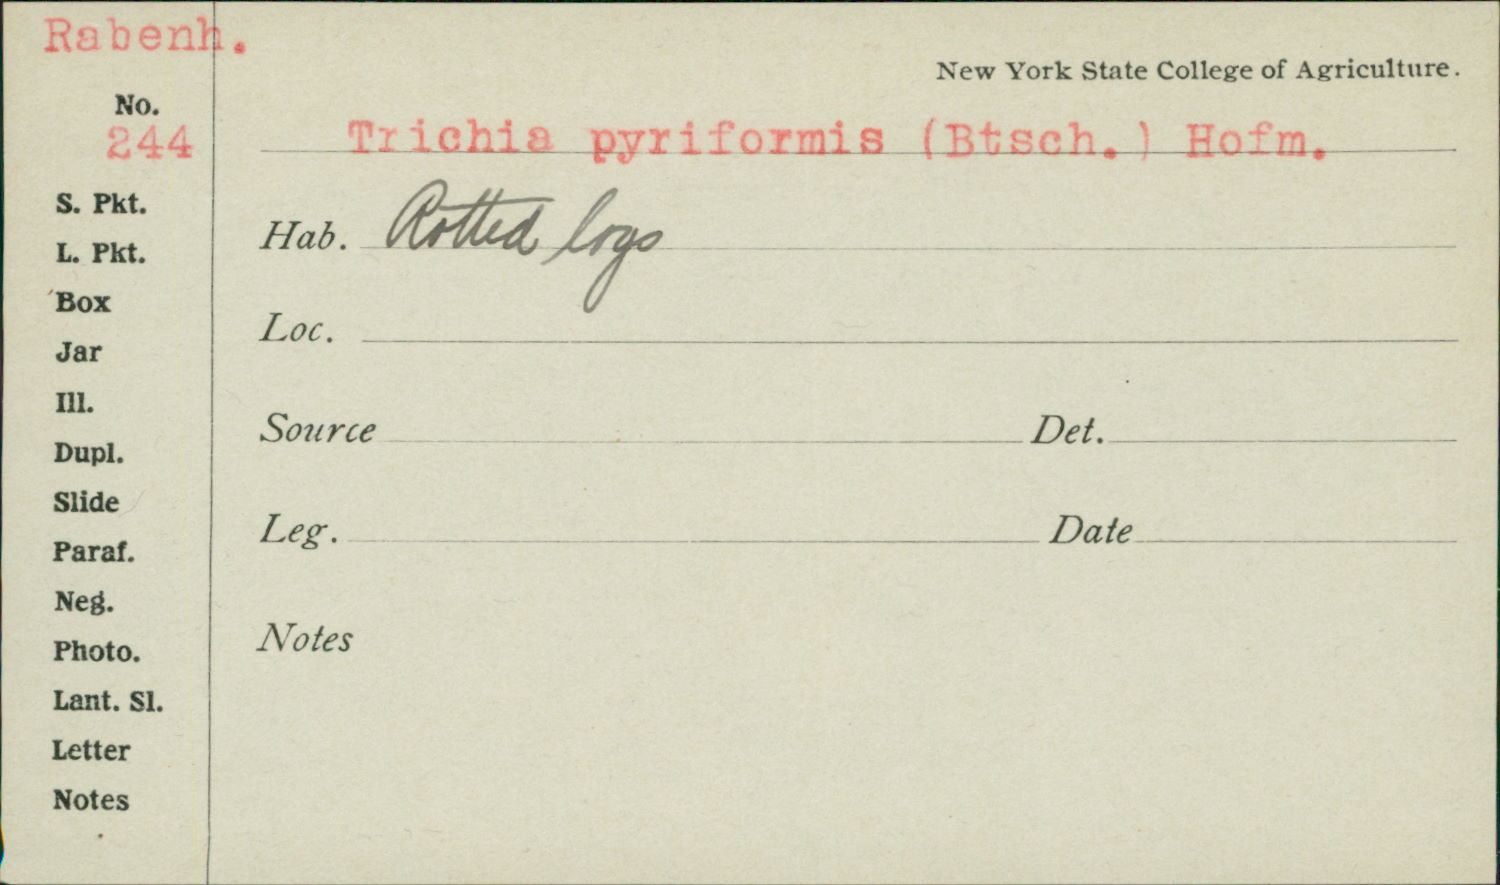 Rabenh.
New York State College of Agriculture.
No.
244
Trichia pyriformis (Btsch.) Hofm.
S. Pkt.
Hab. Rotted logs
L. Pkt.
Box
Loc.
Jar
Ill.
Source Det.
Dupl.
Slide
Leg. Date
Paraf.
Neg.
Notes
Photo.
Lant. Sl.
Letter
Notes